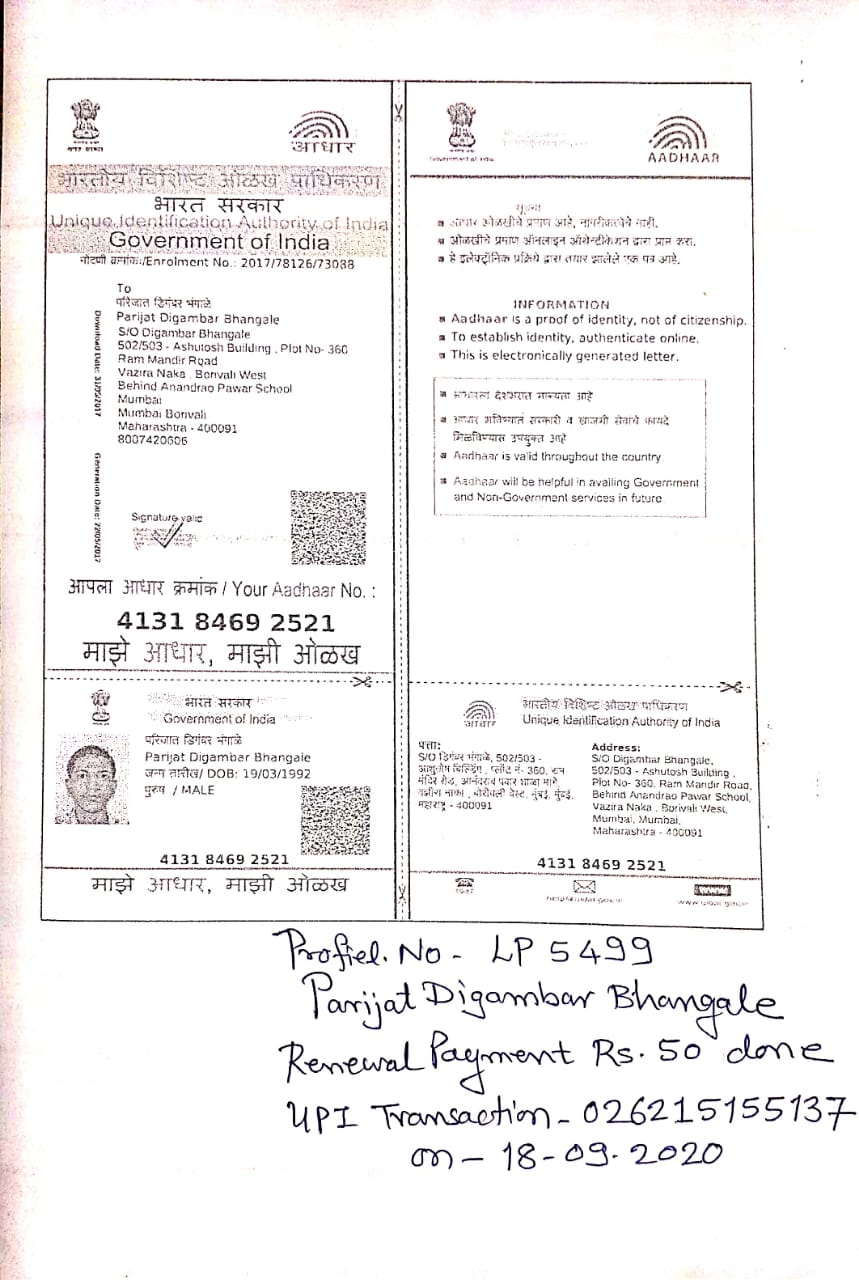 आधार
भारतीय विशिष्ट ओळख प्राधिकरण
भारत सरकार
Unique Identification Authority of India
Government of India
नोंदणी क्रमांक:/Enrolment No.: 2017/78126/73088
To
परिजात डिगंबर भंगाळे
Parijat Digambar Bhangale
S/O Digambar Bhangale
502/503 - Ashutosh Building , Plot No- 360
Ram Mandir Road
Vazira Naka , Borivali West
Behind Anandrao Pawar School
Mumbai
Mumbai Borivali
Maharashtra - 400091
8007420606
Download Date: 31/05/2017
Generation Date: 22/05/2017
Signature valid
आपला आधार क्रमांक / Your Aadhaar No. :
4131 8469 2521
माझे आधार, माझी ओळख
Government of India
AADHAAR
सूचना
आधार ओळखीचे प्रमाण आहे, नागरीकत्वेचे नाही.
ओळखीचे प्रमाण ऑनलाइन ऑथेन्टीकेशन द्वारा प्राप्त करा.
हे इलेक्ट्रॉनिक प्रक्रिये द्वारा तयार झालेले एक पत्र आहे.
INFORMATION
Aadhaar is a proof of identity, not of citizenship.
To establish identity, authenticate online.
This is electronically generated letter.
आधारला देशभरात मान्यता आहे
आधार भविष्यात सरकारी व खाजगी सेवांचे फायदे
मिळविण्यास उपयुक्त आहे
Aadhaar is valid throughout the country.
Aadhaar will be helpful in availing Government
and Non-Government services in future.
भारत सरकार
Government of India
परिजात डिगंबर भंगाळे
Parijat Digambar Bhangale
जन्म तारीख/ DOB: 19/03/1992
पुरुष / MALE
4131 8469 2521
माझे आधार, माझी ओळख
आधार
भारतीय विशिष्ट ओळख प्राधिकरण
Unique Identification Authority of India
पत्ता:
S/O डिगंबर भंगाळे, 502/503 -
आशुतोष बिल्डिंग , प्लॉट नं- 360, राम
मंदिर रोड, आनंदराव पवार शाळा मागे,
वझीरा नाका , बोरीवली वेस्ट, मुंबई, मुंबई,
महाराष्ट्र - 400091
Address:
S/O Digambar Bhangale,
502/503 - Ashutosh Building ,
Plot No- 360, Ram Mandir Road,
Behind Anandrao Pawar School,
Vazira Naka , Borivali West,
Mumbai, Mumbai,
Maharashtra - 400091
4131 8469 2521
1947
www
Profiel. No - LP 5499
Parijat Digambar Bhangale
Renewal Payment Rs. 50 done
UPI Transaction - 026215155137
on - 18-09-2020